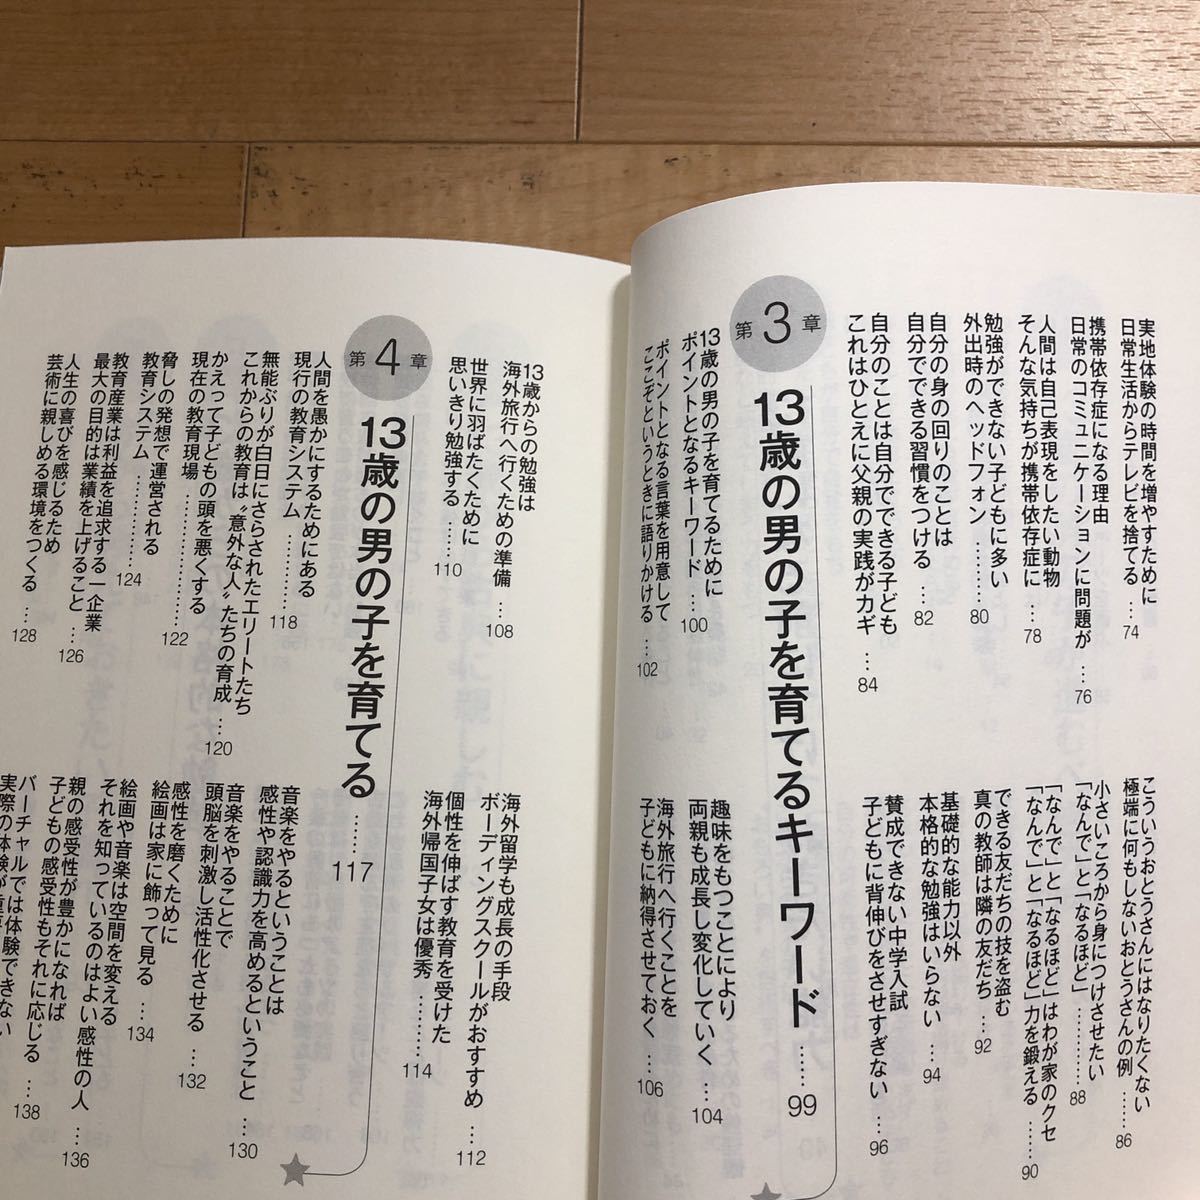 実地体験の時間を増やすために
日常生活からテレビを捨てる …74
携帯依存症になる理由
日常のコミュニケーションに問題が …76
人間は自己表現をしたい動物
そんな気持ちが携帯依存症に …78
勉強ができない子どもに多い
外出時のヘッドフォン …80
自分の身の回りのことは
自分でできる習慣をつける …82
自分のことは自分でできる子ども
これはひとえに父親の実践がカギ …84
こういうおとうさんにはなりたくない
極端に何もしないおとうさんの例 ……86
小さいころから身につけさせたい
「なんで」と「なるほど」 …………88
「なんで」と「なるほど」はわが家のクセ
「なんで」と「なるほど」力を鍛える …90
できる友だちの技を盗む
真の教師は隣の友だち …92
基礎的な能力以外
本格的な勉強はいらない …94
賛成できない中学入試
子どもに背伸びをさせすぎない …96
第3章
13歳の男の子を育てるキーワード ……99
13歳の男の子を育てるために
ポイントとなるキーワード …100
ポイントとなる言葉を用意して
ここぞというときに語りかける …102
趣味をもつことにより
両親も成長し変化していく …104
海外旅行へ行くことを
子どもに納得させておく …106
13歳からの勉強は
海外旅行へ行くための準備 …108
世界に羽ばたくために
思いきり勉強する ………110
海外留学も成長の手段
ボーディングスクールがおすすめ …112
個性を伸ばす教育を受けた
海外帰国子女は優秀 ………114
第4章
13歳の男の子を育てる ……117
人間を愚かにするためにある
現行の教育システム …………118
無能ぶりが白日にさらされたエリートたち
これからの教育は〝意外な人〟たちの育成 …120
かえって子どもの頭を悪くする
現在の教育現場 …………122
脅しの発想で運営される
教育システム …………124
教育産業は利益を追求する一企業
最大の目的は業績を上げること …126
人生の喜びを感じるため
芸術に親しめる環境をつくる …128
音楽をやるということは
感性や認識力を高めるということ …130
音楽をやることで
頭脳を刺激し活性化させる …132
感性を磨くために
絵画は家に飾って見る …134
絵画や音楽は空間を変える
それを知っているのはよい感性の人 …136
親の感受性が豊かになれば
子どもの感受性もそれに応じる …138
バーチャルでは体験できない
実際の体験が重要